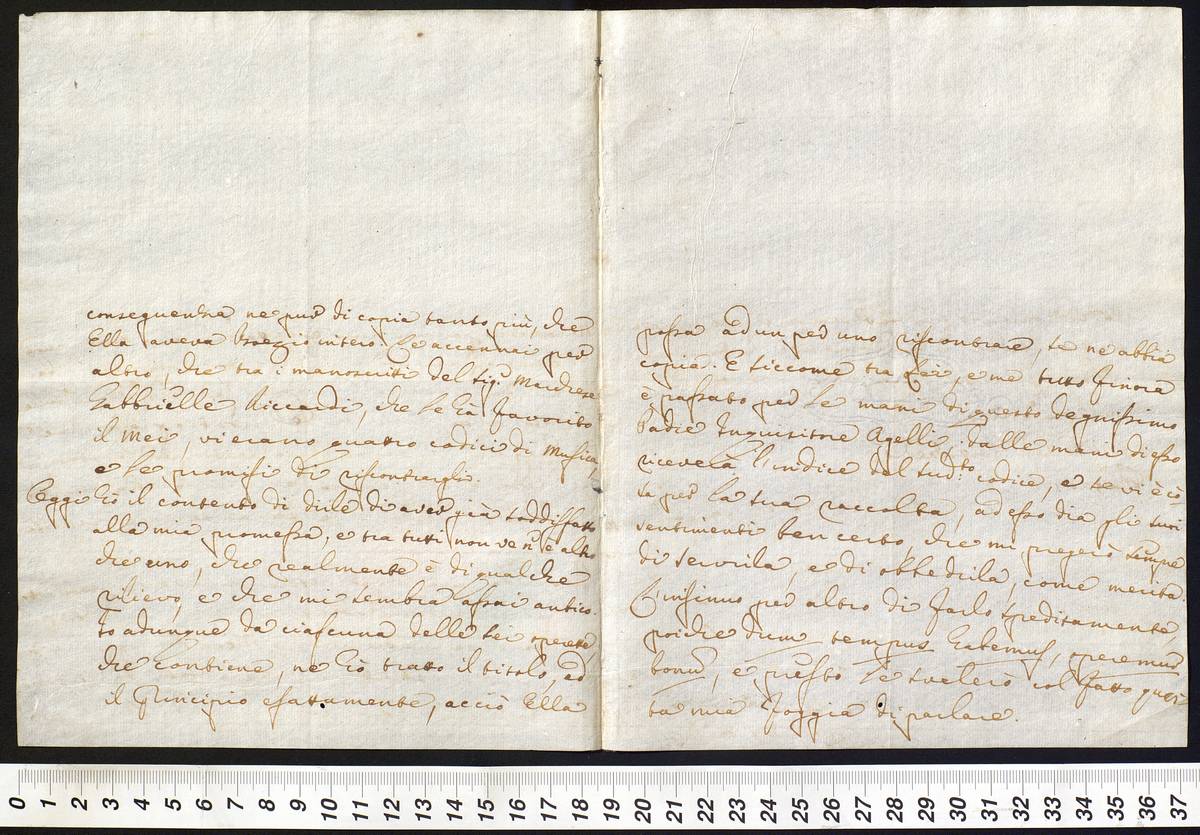 conseguenza ne pur di copia tanto più, che
Ella aveva Boezio intero. Le accennai per
altro, che tra i manoscritti del Sig.r Marchese
Gabbriello Riccardi, che le ha favorito
il Mei, vi erano quattro codici di Musica,
e le promisi di riscontrargli.
Oggi hò il contento di dirle di aver già soddisfatto
alla mia promessa, e tra tutti non ve n'è altro
che uno, che realmente è di qualche
rilievo, e che mi sembra assai antico.
Io adunque da ciascuna delle sei operette,
che contiene, ne hò tratto il titolo, ed
il Principio esattamente, acciò Ella
possa ad un per uno riscontrare, se ne abbia
copia. E siccome tra Lei, e me tutto finora
è passato per le mani di questo degnissimo
Padre Inquisitore Agelli; dalle mani di esso
riceverà l'indice del sud.to codice, e se vi è co
sa per la sua raccolta, ad esso dia gli suoi
sentimenti ben certo, che mi pregerò sempre
di servirla, e di obbedirla, come merita.
L'insinuo per altro di farlo speditamente,
poiche dum tempus habemus, operemur
bonum, e presto le svelerò col fatto ques
ta mia foggia di parlare.
0 1 2 3 4 5 6 7 8 9 10 11 12 13 14 15 16 17 18 19 20 21 22 23 24 25 26 27 28 29 30 31 32 33 34 35 36 37